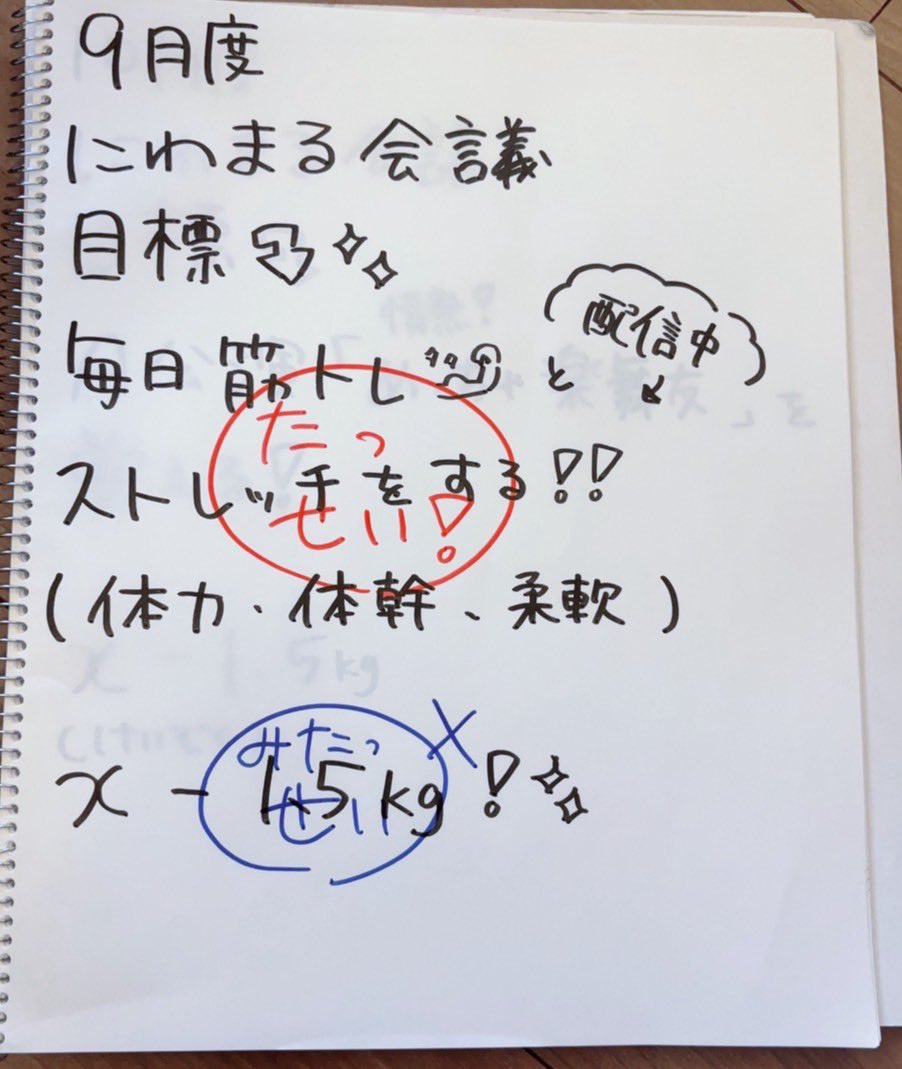 9月度
にわまる会議
目標
毎日筋トレと
配信中
ストレッチをする!!
たっ
せい!
(体力、体幹、柔軟)
x - 1.5kg!
みたっ
せい
x